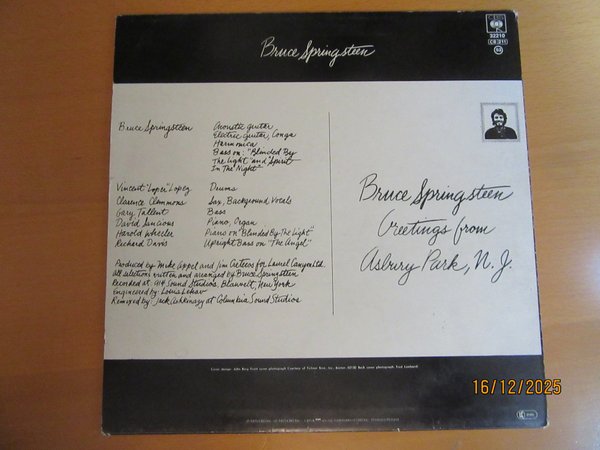 Bruce Springsteen
CBS
32210
CB 211
Bruce Springsteen
Acoustic guitar
Electric guitar, Conga
Harmonica
Bass on: "Blinded By
The Light" and "Spirit
In The Night"
Vincent "Loper" Lopez Drums
Clarence Clemmons Sax, Background Vocals
Gary Tallent Bass
David Sancious Piano, Organ
Harold Wheeler Piano on "Blinded By The Light"
Richard Davis Upright Bass on "The Angel"
Produced by Mike Appel and Jim Cretecos for Laurel Canyon Ltd.
All selections written and arranged by Bruce Springsteen
Recorded at: 914 Sound Studios, Blauvelt, New York
Engineered by: Louis Lahav
Remixed by: Jack Ashkinazy at Columbia Sound Studios
Bruce Springsteen
Greetings from
Asbury Park, N.J.
Cover design: John Berg Front cover photograph Courtesy of Tichnor Bros., Inc., Boston, 02130 Back cover photograph: Fred Lombardi
16/12/2025